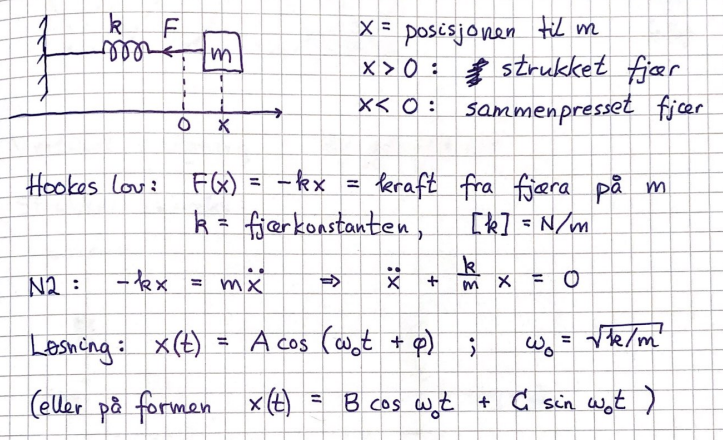 k F
m
0 x
x = posisjonen til m
x > 0 : strukket fjær
x < 0 : sammenpresset fjær
Hookes lov: F(x) = -kx = kraft fra fjæra på m
k = fjærkonstanten, [k] = N/m
N2 : -kx = mẍ ⇒ ẍ + k/m x = 0
Løsning: x(t) = A cos (ω₀t + φ) ; ω₀ = √k/m
(eller på formen x(t) = B cos ω₀t + C sin ω₀t )